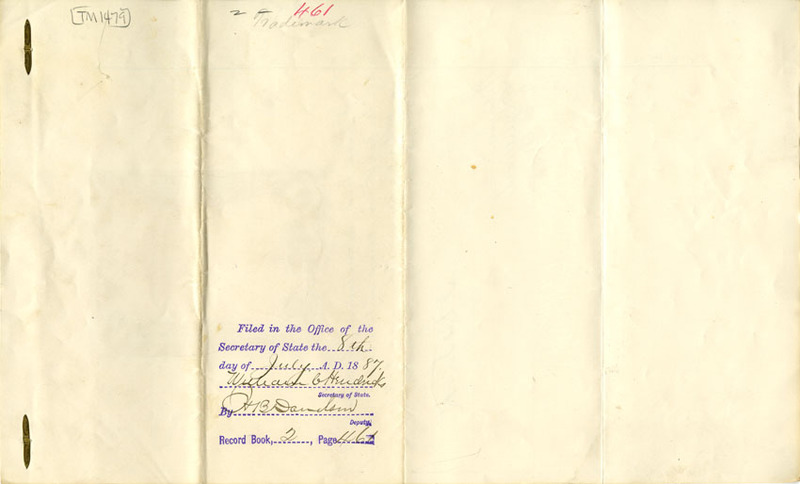 [TM1479]
2 461
Trademark
Filed in the Office of the
Secretary of State the 8th
day of July A. D. 1887.
William C Hendricks
Secretary of State.
By H B Davidson
Deputy.
Record Book, 2, Page 461